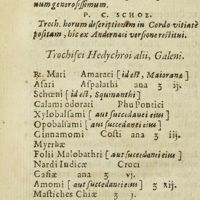 num generosissimum.
P. C. SCHOL.
Troch. horum descriptionem in Cordo vitiatè
positam, hic ex Andernaci versione restitui.
Trochisci Hedychroi alij, Galeni.
℞. Mari Amaraci [id est, Maiorana]
Asari Aspalathi ana ʒ ij.
Schœni [id est, Squinanthi]
Calami odorati Phu Pontici
Xylobalsami [aut succedanei eius]
Opobalsami [aut succedanei eius]
Cinnamomi Costi ana ʒ iij.
Myrrhæ
Folii Malobathri [aut succedanei eius]
Nardi Indicæ Croci
Casiæ ana ʒ vj.
Amomi [aut succedanei eius] ʒ xij.
Mastiches Chiæ ʒ j.